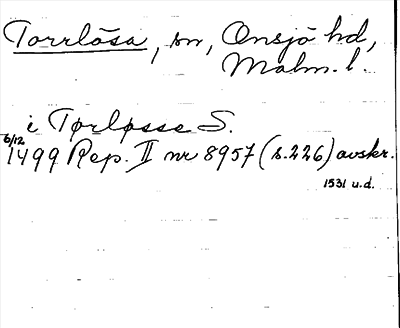 Torrlösa, sn, Onsjö hd,
Malm. l.
i Tørløsse S.
6/12 1499 Rep. II nr 8957 (s.226) avskr.
1531 u.d.